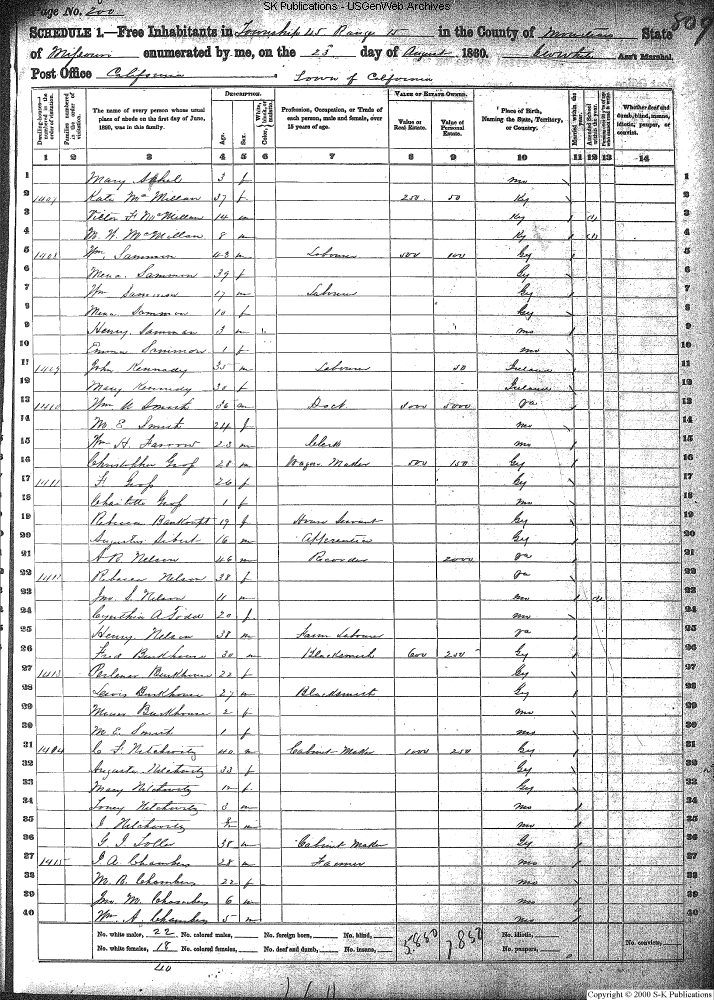 SK Publications - USGenWeb Archives
Page No. 200
809
SCHEDULE 1.—Free Inhabitants in Township 45 Range 15 in the County of Moniteau State
of Missouri enumerated by me, on the 25 day of August 1860. Ass't Marshal.
Post Office California Town of California
DESCRIPTION. VALUE OF ESTATE OWNED.
Dwelling-houses—numbered in the order of visitation.
Families numbered in the order of visitation.
The name of every person whose usual place of abode on the first day of June, 1860, was in this family.
Age.
Sex.
Color, White, black, or mulatto.
Profession, Occupation, or Trade of each person, male and female, over 15 years of age.
Value of Real Estate.
Value of Personal Estate.
Place of Birth, Naming the State, Territory, or Country.
Married within the year.
Attended School within the year.
Whether deaf and dumb, blind, insane, idiotic, pauper, or convict.
1 2 3 4 5 6 7 8 9 10 11 12 13 14
1 Mary 3 f Mo 1
2 1407 Kate McMillan 37 f 250 50 Ky 2
3 Victor F McMillan 14 m Ky 3
4 M. W. McMillan 8 m Ky 4
5 1408 Wm. Sammon 43 m Labourer 500 100 Gy 5
6 Mena Sammon 39 f Gy 6
7 Wm Sammon 17 m Labourer Gy 7
8 Mena Sammon 10 f Gy 8
9 Henry Samman 3 m Mo 9
10 Emma Sammon 1 f Mo 10
11 1409 John Kennady 35 m Labourer 50 Ireland 11
12 Mary Kennedy 30 f Ireland 12
13 1410 Wm Smith 36 m Doct 5000 5000 Va 13
14 M. E. Smith 24 f Mo 14
15 Wm H. Farrow 23 m Clerk Mo 15
16 Christopher Grof 28 m Wagon Maker 500 150 Gy 16
17 1411 F. Grof 26 f Gy 17
18 Charlotte Grof 1 f Mo 18
19 Rebecca Bankropt 19 f House Servant Gy 19
20 Augustus Sibert 16 m Apprentice Gy 20
21 A. R. Nelson 46 m Recorder 2000 Va 21
22 1412 Rebecca Nelson 38 f Va 22
23 Jno. S. Nelson 11 m Mo 23
24 Cynthia A Todd 20 f Mo 24
25 Henry Nelson 38 m Farm Labourer Va 25
26 Fred Burkhouse 30 m Blacksmith 600 250 Gy 26
27 1413 Burkhouse 22 f Gy 27
28 Lewis Burkhouse 27 m Blacksmith Gy 28
29 Burkhouse 2 f Mo 29
30 M. E. Smith 1 f Mo 30
31 1414 C. F. Nelchowitz 40 m Cabinet Maker 1000 250 Gy 31
32 Augusta Nelchowitz 33 f Gy 32
33 Mary Nelchowitz 12 f Gy 33
34 Nelchowitz 3 m Mo 34
35 J. Nelchowitz m Mo 35
36 G. J. 38 m Cabinet Maker Gy 36
37 1415 J. A. Chambers 28 m Farmer Mo 37
38 M. B. Chambers 22 f Mo 38
39 Jno. M. Chambers 6 m Mo 39
40 Wm A. Chambers 5 m Mo 40
No. white males, 22 No. colored males, No. foreign born, No. blind, 5.850 7.850 No. idiotic, No. convicts,
No. white females, 18 No. colored females, No. deaf and dumb, No. insane, No. paupers,
40
Copyright © 2000 S-K Publications